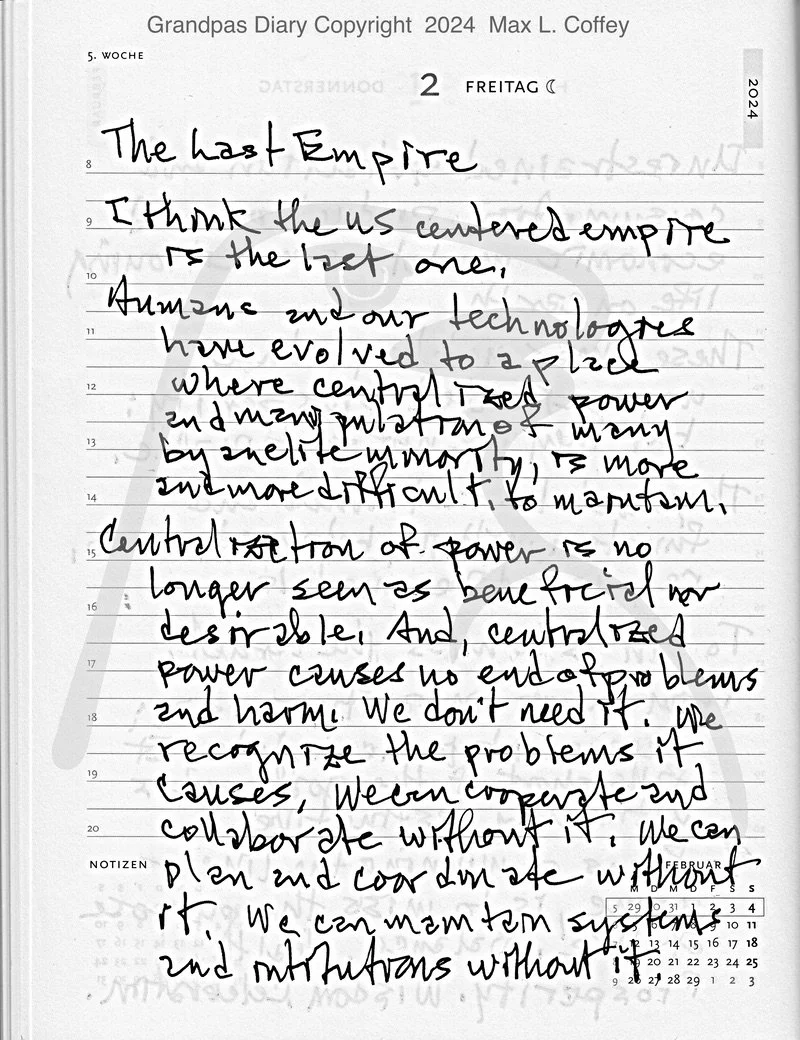 Grandpas Diary Copyright 2024 Max L. Coffey
5. WOCHE
2 FREITAG
2024
The Last Empire
8
I think the US centered empire
9
is the last one.
10
Humans and our technologies
11
have evolved to a place
12
where centralized power
and manipulation of many
13
by an elite minority, is more
and more difficult, to maintain.
14
Centralization of power is no
15
longer seen as beneficial nor
16
desirable. And, centralized
17
power causes no end of problems
and harm. We don't need it. We
18
recognize the problems it
19
causes, We can cooperate and
20
collaborate without it. We can
NOTIZEN
FEBRUAR
plan and coordinate without
M D M D F S S
it. We can maintain systems
5 29 30 31 1 2 3 4
9 10 11
and intitutions without it.
12 13 14 15 16 17 18
19 20 21 22 23 24 25
9 26 27 28 29 1 2 3